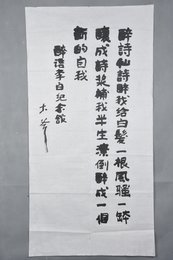 醉詩仙詩醉我給白髮一根風騷一蹲
釀成詩漿補我半生潦倒醉成一個
新的自我
醉謁李白纪念館